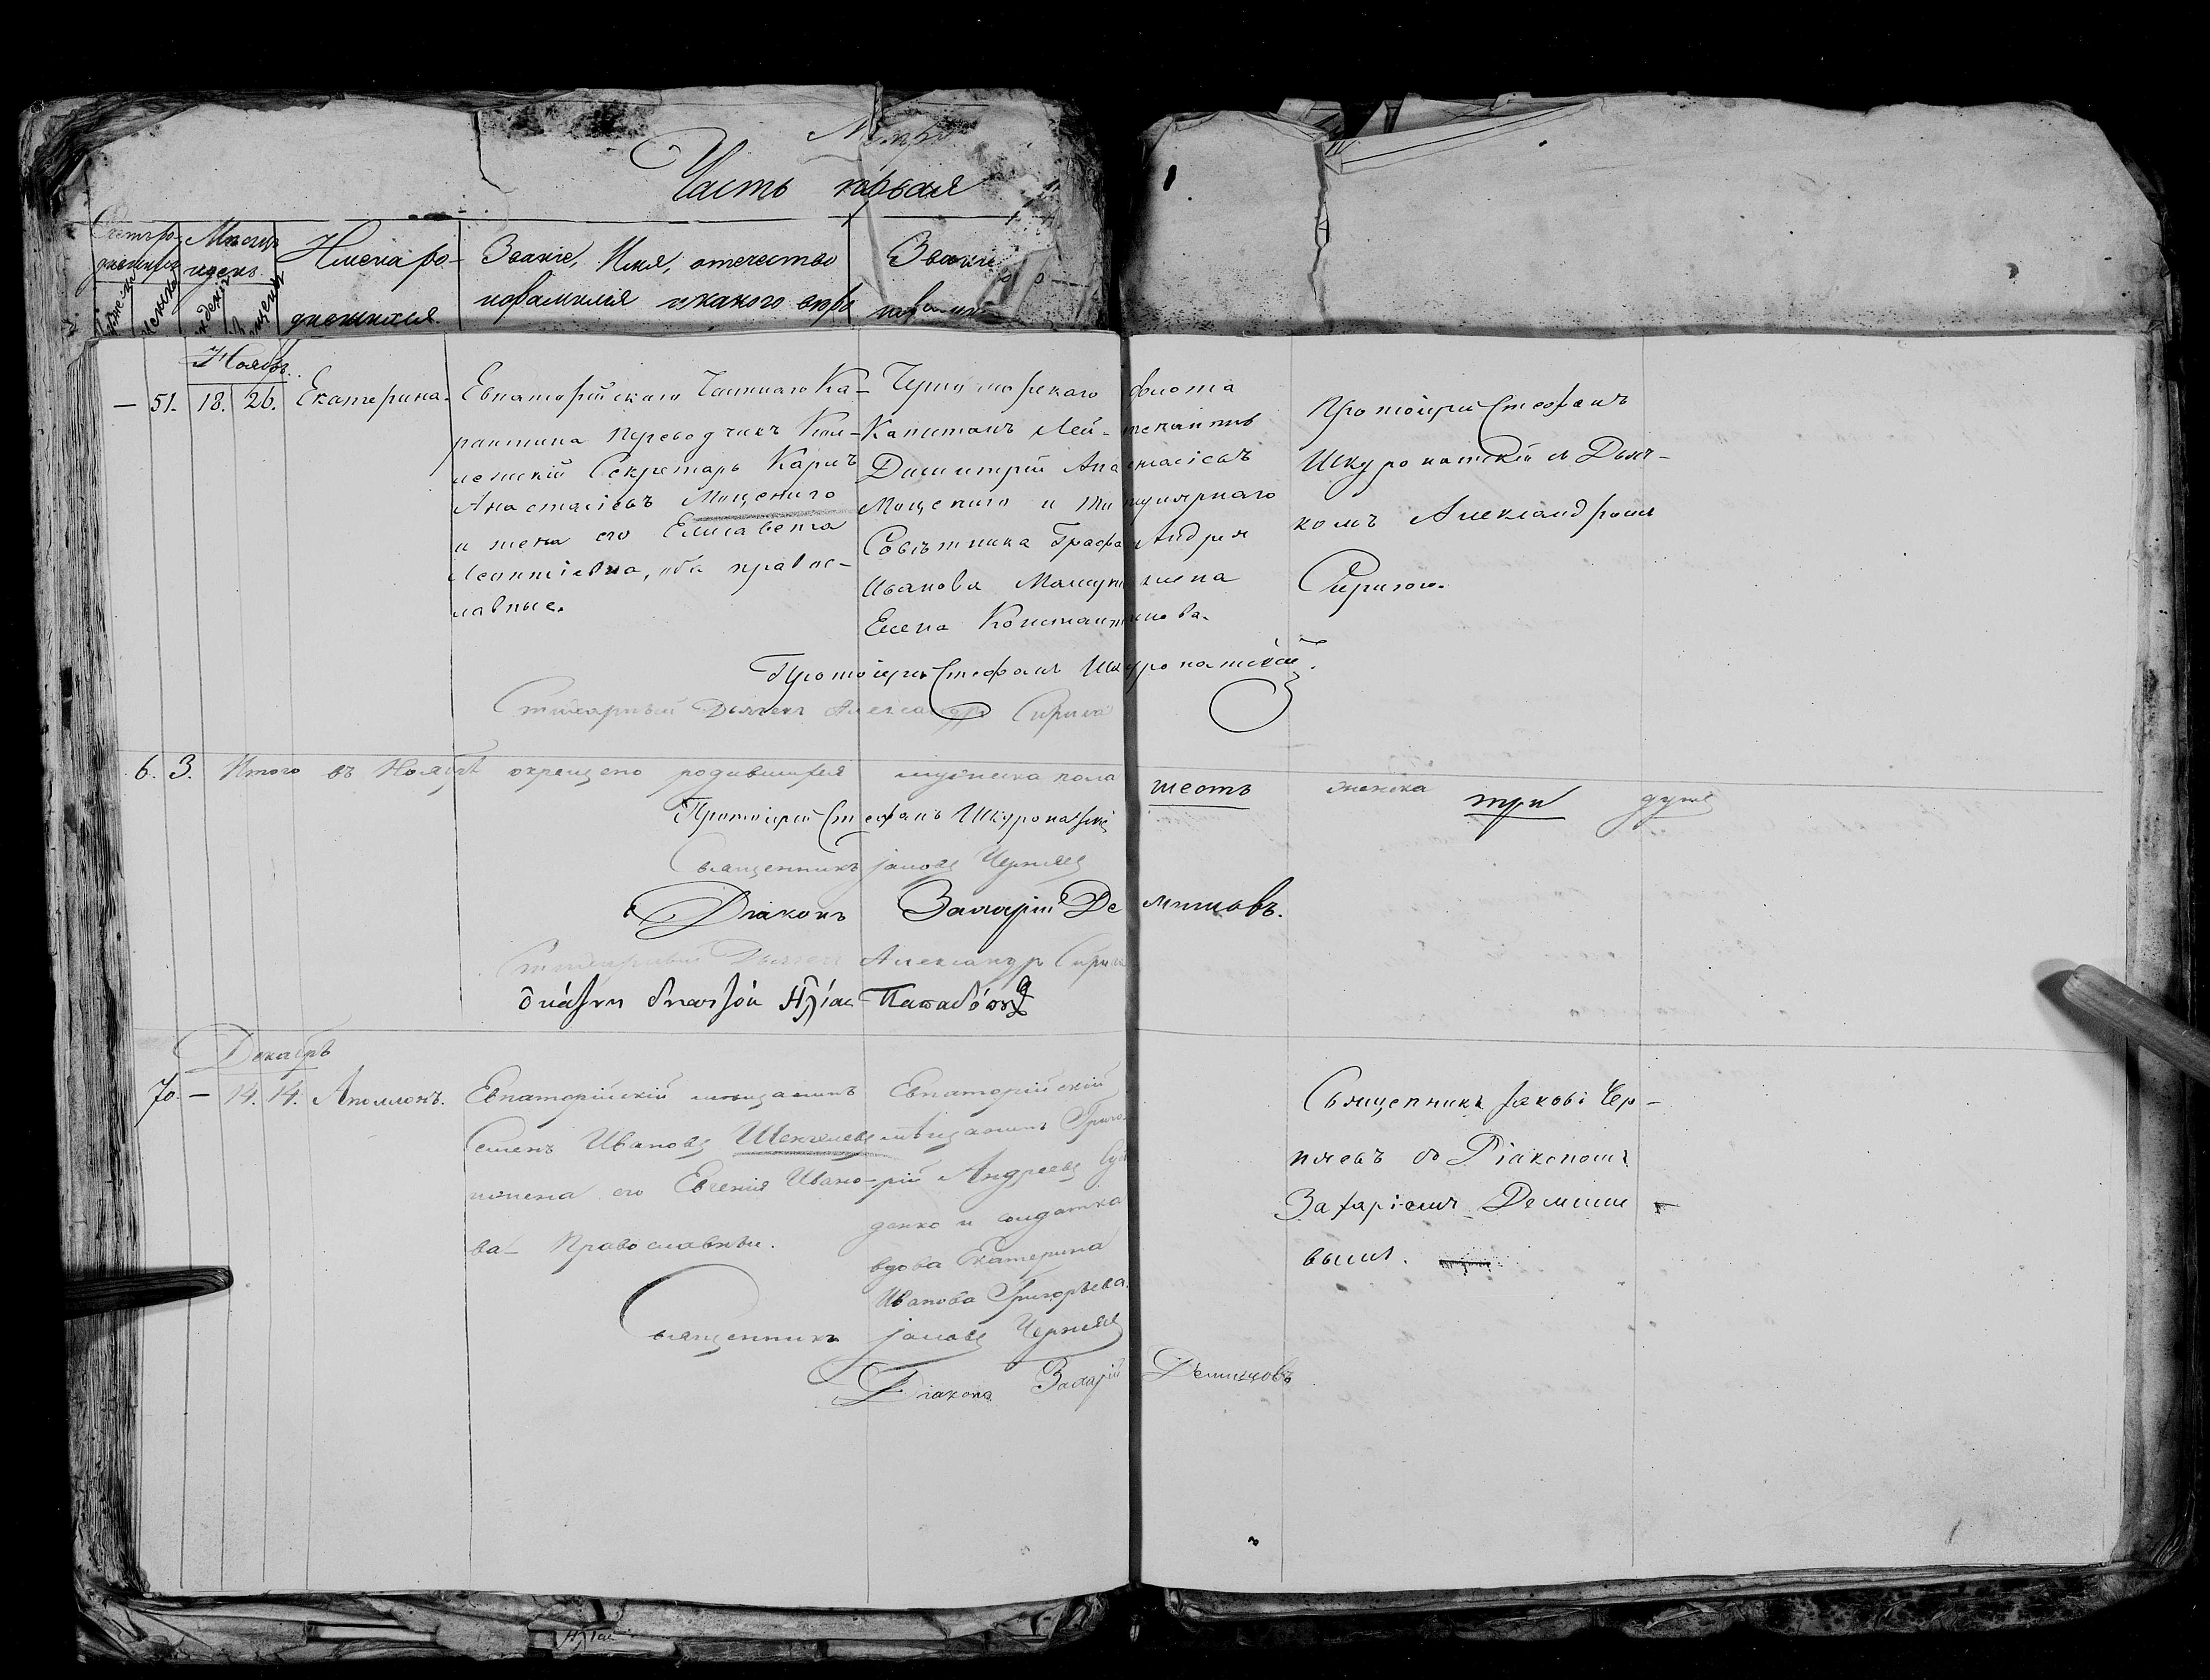 Часть первая
Счетъ ро-
Мѣсяцъ
Имена ро-
Званіе, Имя, отчество
Званіе
дившихся
и день
дившихся.
и фамилія и какого вѣро
и фамилія
Ноябрь.
— 51. 18. 26. Екатерина.
Евпаторійскаго Частнаго Ка-
рантина Переводчикъ Кол-
лежскій Секретарь Карлъ
Анастасіевъ Моцениго
и жена его Елисавета
Леонтіевна, оба правос-
лавные.
Черноморскаго флота
Капитанъ Лей-тенантъ
Димитрій Анастасіевъ
Моцениго и титулярнаго
Совѣтника Графа Андрея
Иванова жена
Елена Константинова.
Протоіерей Стефанъ
Шкуропатскій съ Дьяч-
комъ Александромъ
Сириго.
Протоіерей Стефанъ Шкуропатскій.
Стихарный Дьячекъ Александръ Сирига
6. 3. Итого въ Ноябрѣ окрещено родившихся мужеска пола шесть женска три душъ
Протоіерей Стефанъ Шкуропатскій
Священникъ Іаковъ Черняевъ
Діаконъ Захарій Демишовъ.
Стихарный Дьячекъ Александръ Сирига
Декабрь
70 — 14. 14. Аполлонъ.
Евпаторійскій мѣщанинъ
Семенъ Ивановъ
и жена его Евгенія Ивано-
ва Православные.
Евпаторійскій
мѣщанинъ Григо-
рій Андреевъ
денко и солдатка
вдова Екатерина
Иванова Григорьева.
Священникъ Іаковъ Чер-
няевъ съ Діакономъ
Захаріемъ Демиши-
вымъ.
Священникъ Іаковъ Черняевъ
Діаконъ Захарій Демишовъ